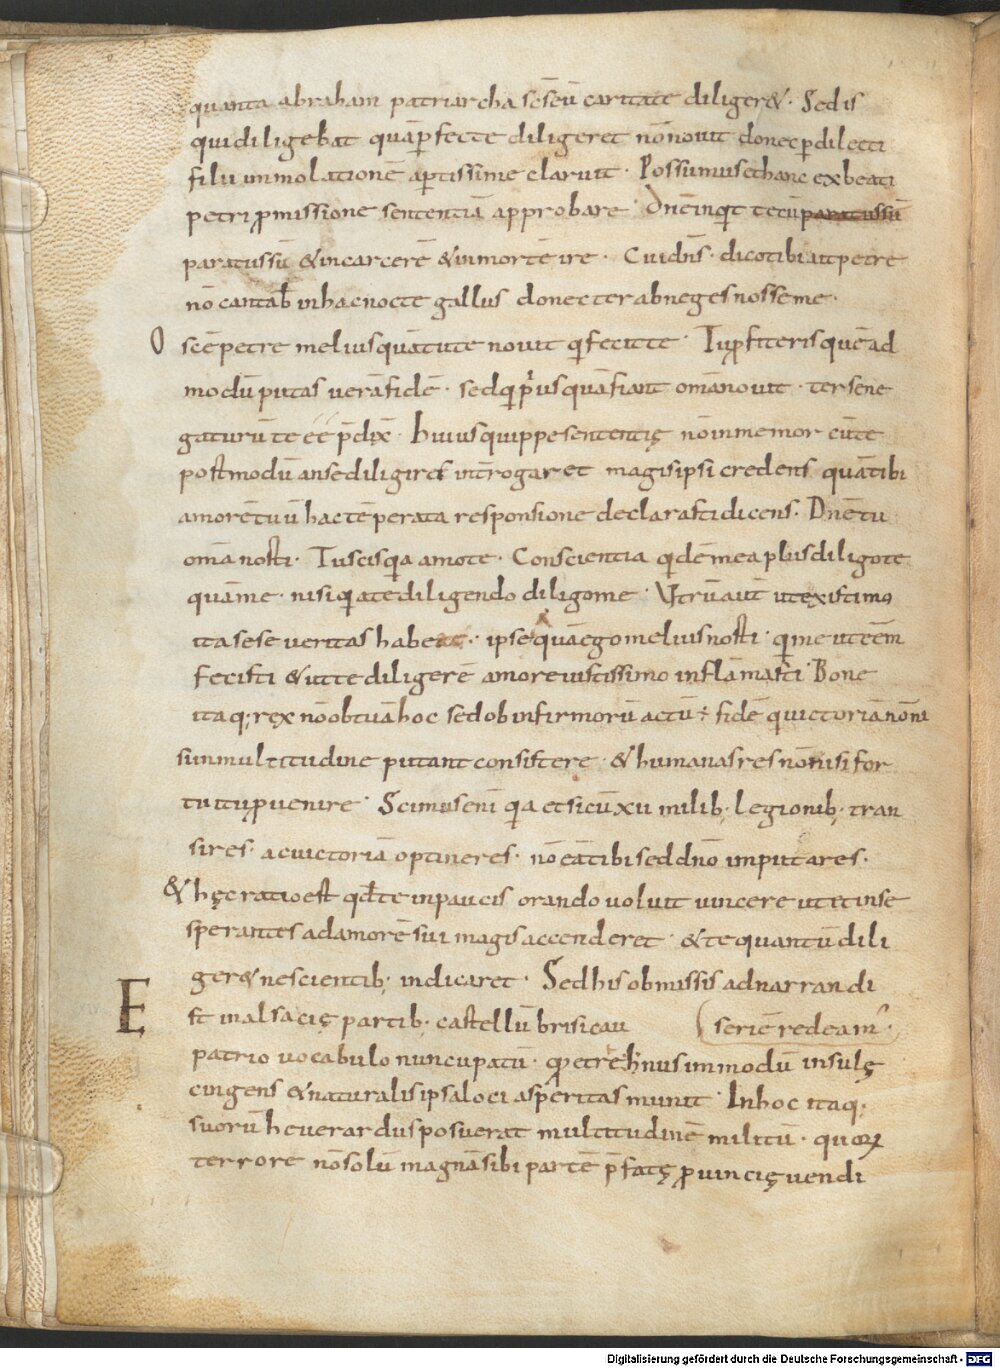 quanta abraham patriarcha se seū caritate diliger&. Sed is
qui diligebat quā pfecte diligeret nō novit donec p dilecti
filii immolationē aptissime claruit. Possumus & hanc ex beati
petri pmissione sententiā approbare. Dn̄e inquit tecū paratus sū
paratus sū & in carcerē & in mortē ire. Cui dn̄s. dico tibi ait petre
nō cantab̄ in hac nocte gallus donec ter abneges nosse me.
O scē petre melius quā tu te novit qui fecit te. Tu pfiteris quēad
modū putas verā fidē. sed qui prius quā fiant omā novit. ter se ne
gaturū te eē p̄dix̄. Huius quippe sententię nō inmemor cū te
postmodū an se diligires introgaret magis ipsi credens quā tibi
amorē tuū hac tēperata responsione declarasti dicens. Dn̄e tu
omā nosti. Tu scis qia amo te. Conscientia qidē mea plus diligo te
quā me. nisi qia te diligendo diligo me. Utrū aut̄ ut existimo
ita sese veritas habeat. ipse quā ego melius nosti. qi me ut eēm
fecisti & ut te diligerē amore iustissimo inflāmasti. Bone
itaq; rex nō ob tuā hoc sed ob infirmorū actū ÷ fidē qui victoriā nō ni
si in multitudine putant consistere. & humanas res nō nisi for
tuitu pvenire. Scimus enī qia etsi cū xii milib; legionib; tran
sires. ac victoriā optineres. nō eā tibi sed dn̄o imputares.
& hęc ratio est qđ te in paucis orando voluit vincere ut et in se
sperantes ad amorē sui magis accenderet. & te quantū dili
ger& nescientib; indicaret. Sed his obmissis ad narrandi
seriē redeam᷒.
E st in alsacię partib; castellū brisicau
patrio vocabulo nuncupatū. quod et rehnus in modū insulę
cingens & naturalis ipsa loci asperitas munit. In hoc itaq;
suorū heverardus posuerat multitudinē militū. quoꝝ
terrore nō solū magnā sibi partē p̄fatę pvincię vendi
Digitalisierung gefördert durch die Deutsche Forschungsgemeinschaft - DFG